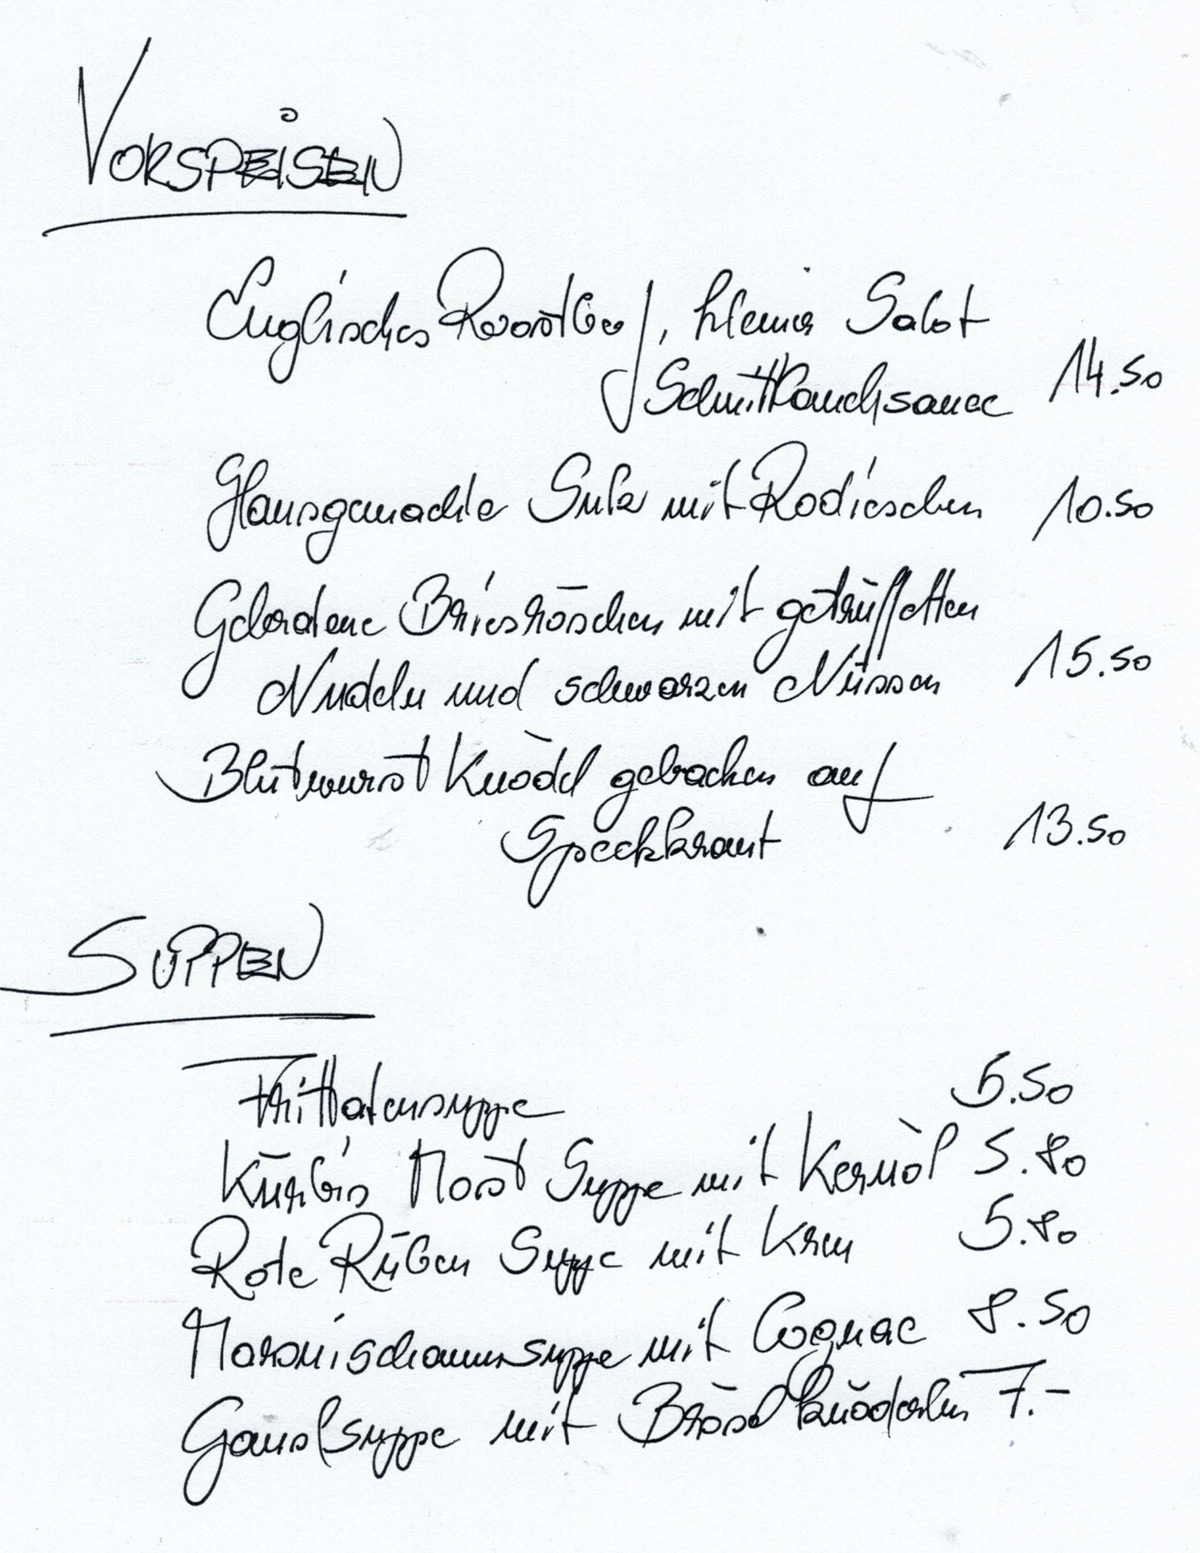 VORSPEISEN
Englisches Roastbeef, kleiner Salat
Schnittlauchsauce 14.50
Hausgemachte Sulz mit Radieschen 10.50
Gebratene Briesröschen mit getrüffelten
Nudeln und schwarzen Nüssen 15.50
Blutwurst Knödel gebacken auf
Speckkraut 13.50
SUPPEN
Frittatensuppe 5.50
Kürbis Most Suppe mit Kernöl 5.80
Rote Rüben Suppe mit Kren 5.80
Maronischaumsuppe mit Cognac 8.50
Gans'lsuppe mit Brösel knöderln 7.-